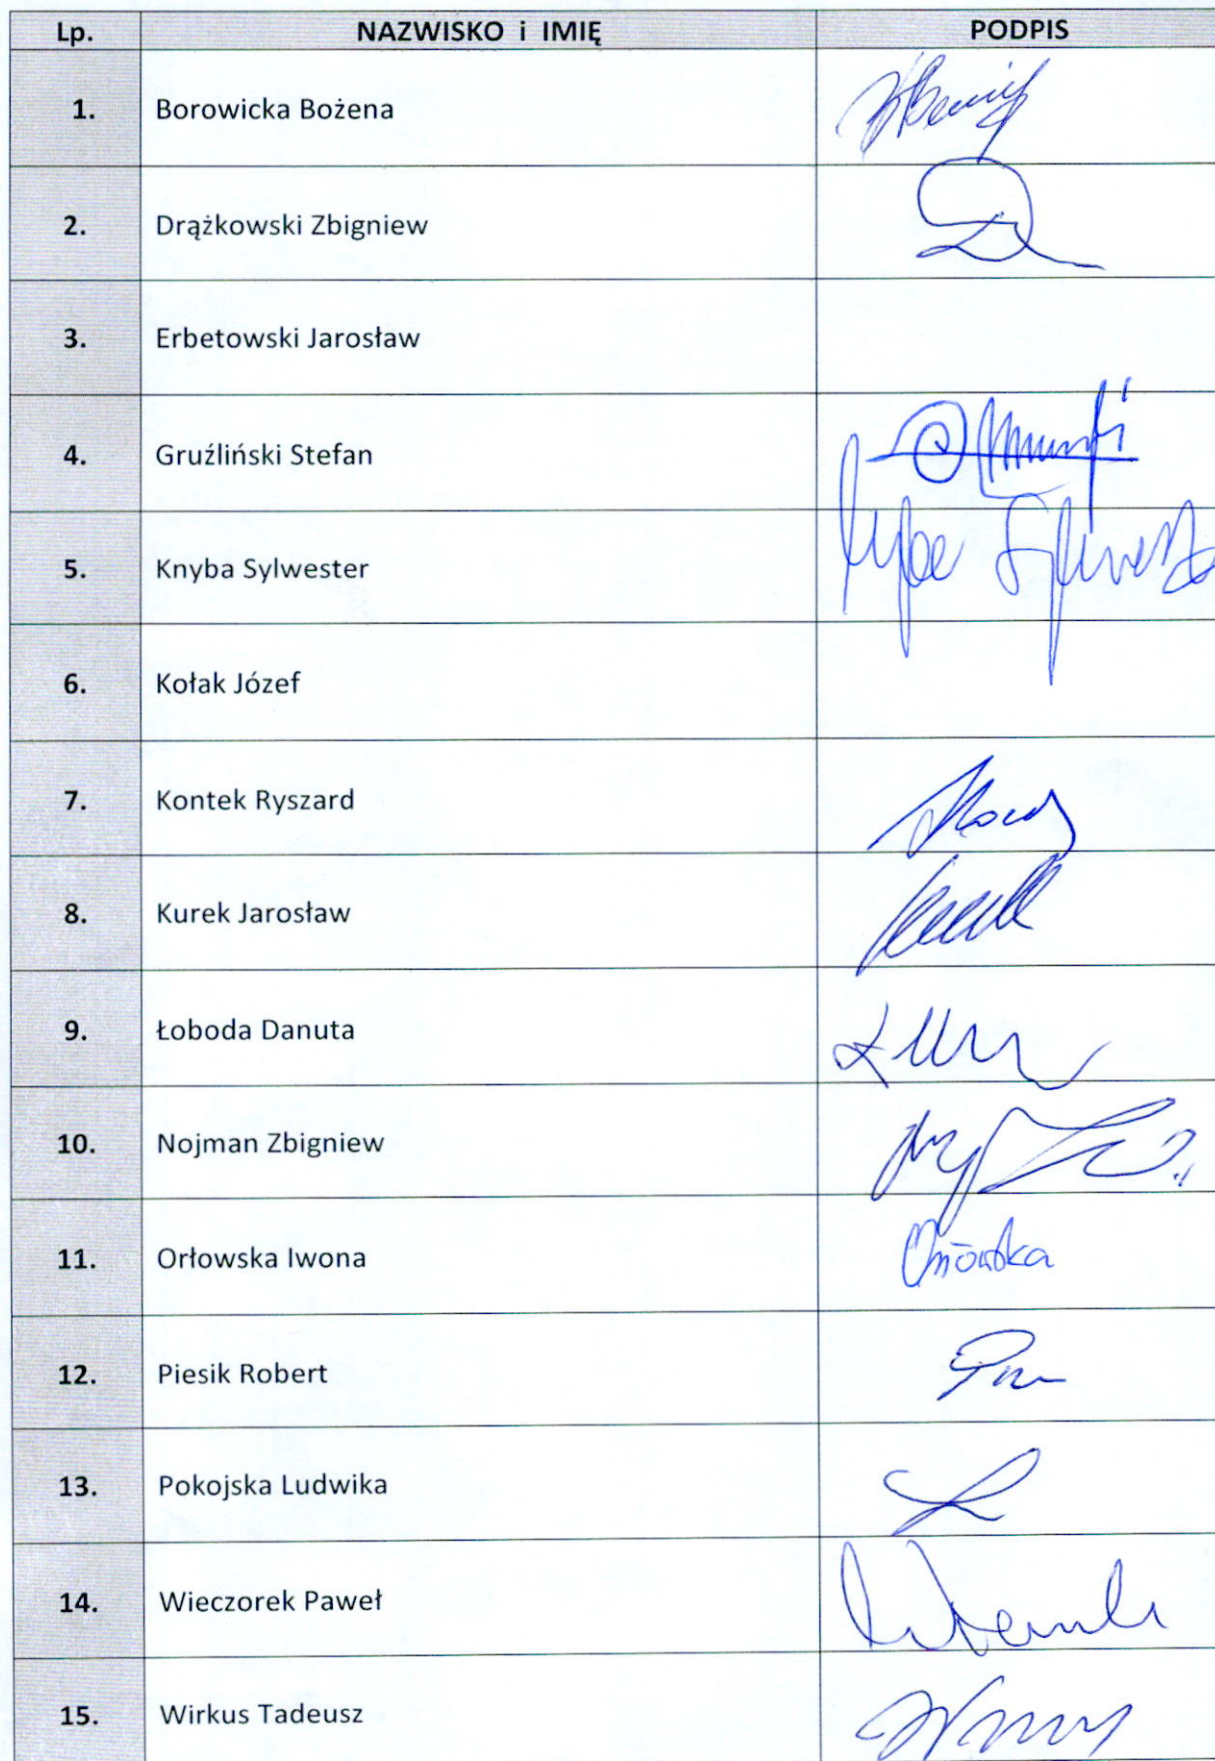 Lp. NAZWISKO i IMIĘ PODPIS
1. Borowicka Bożena
2. Drążkowski Zbigniew
3. Erbetowski Jarosław
4. Gruźliński Stefan
5. Knyba Sylwester
6. Kołak Józef
7. Kontek Ryszard
8. Kurek Jarosław
9. Łoboda Danuta
10. Nojman Zbigniew
11. Orłowska Iwona
12. Piesik Robert
13. Pokojska Ludwika
14. Wieczorek Paweł
15. Wirkus Tadeusz